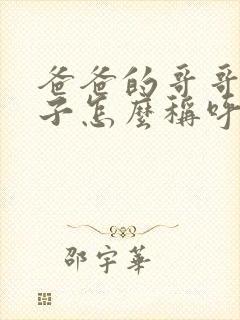 爸爸的哥哥
子怎麼稱呼
邵宇華